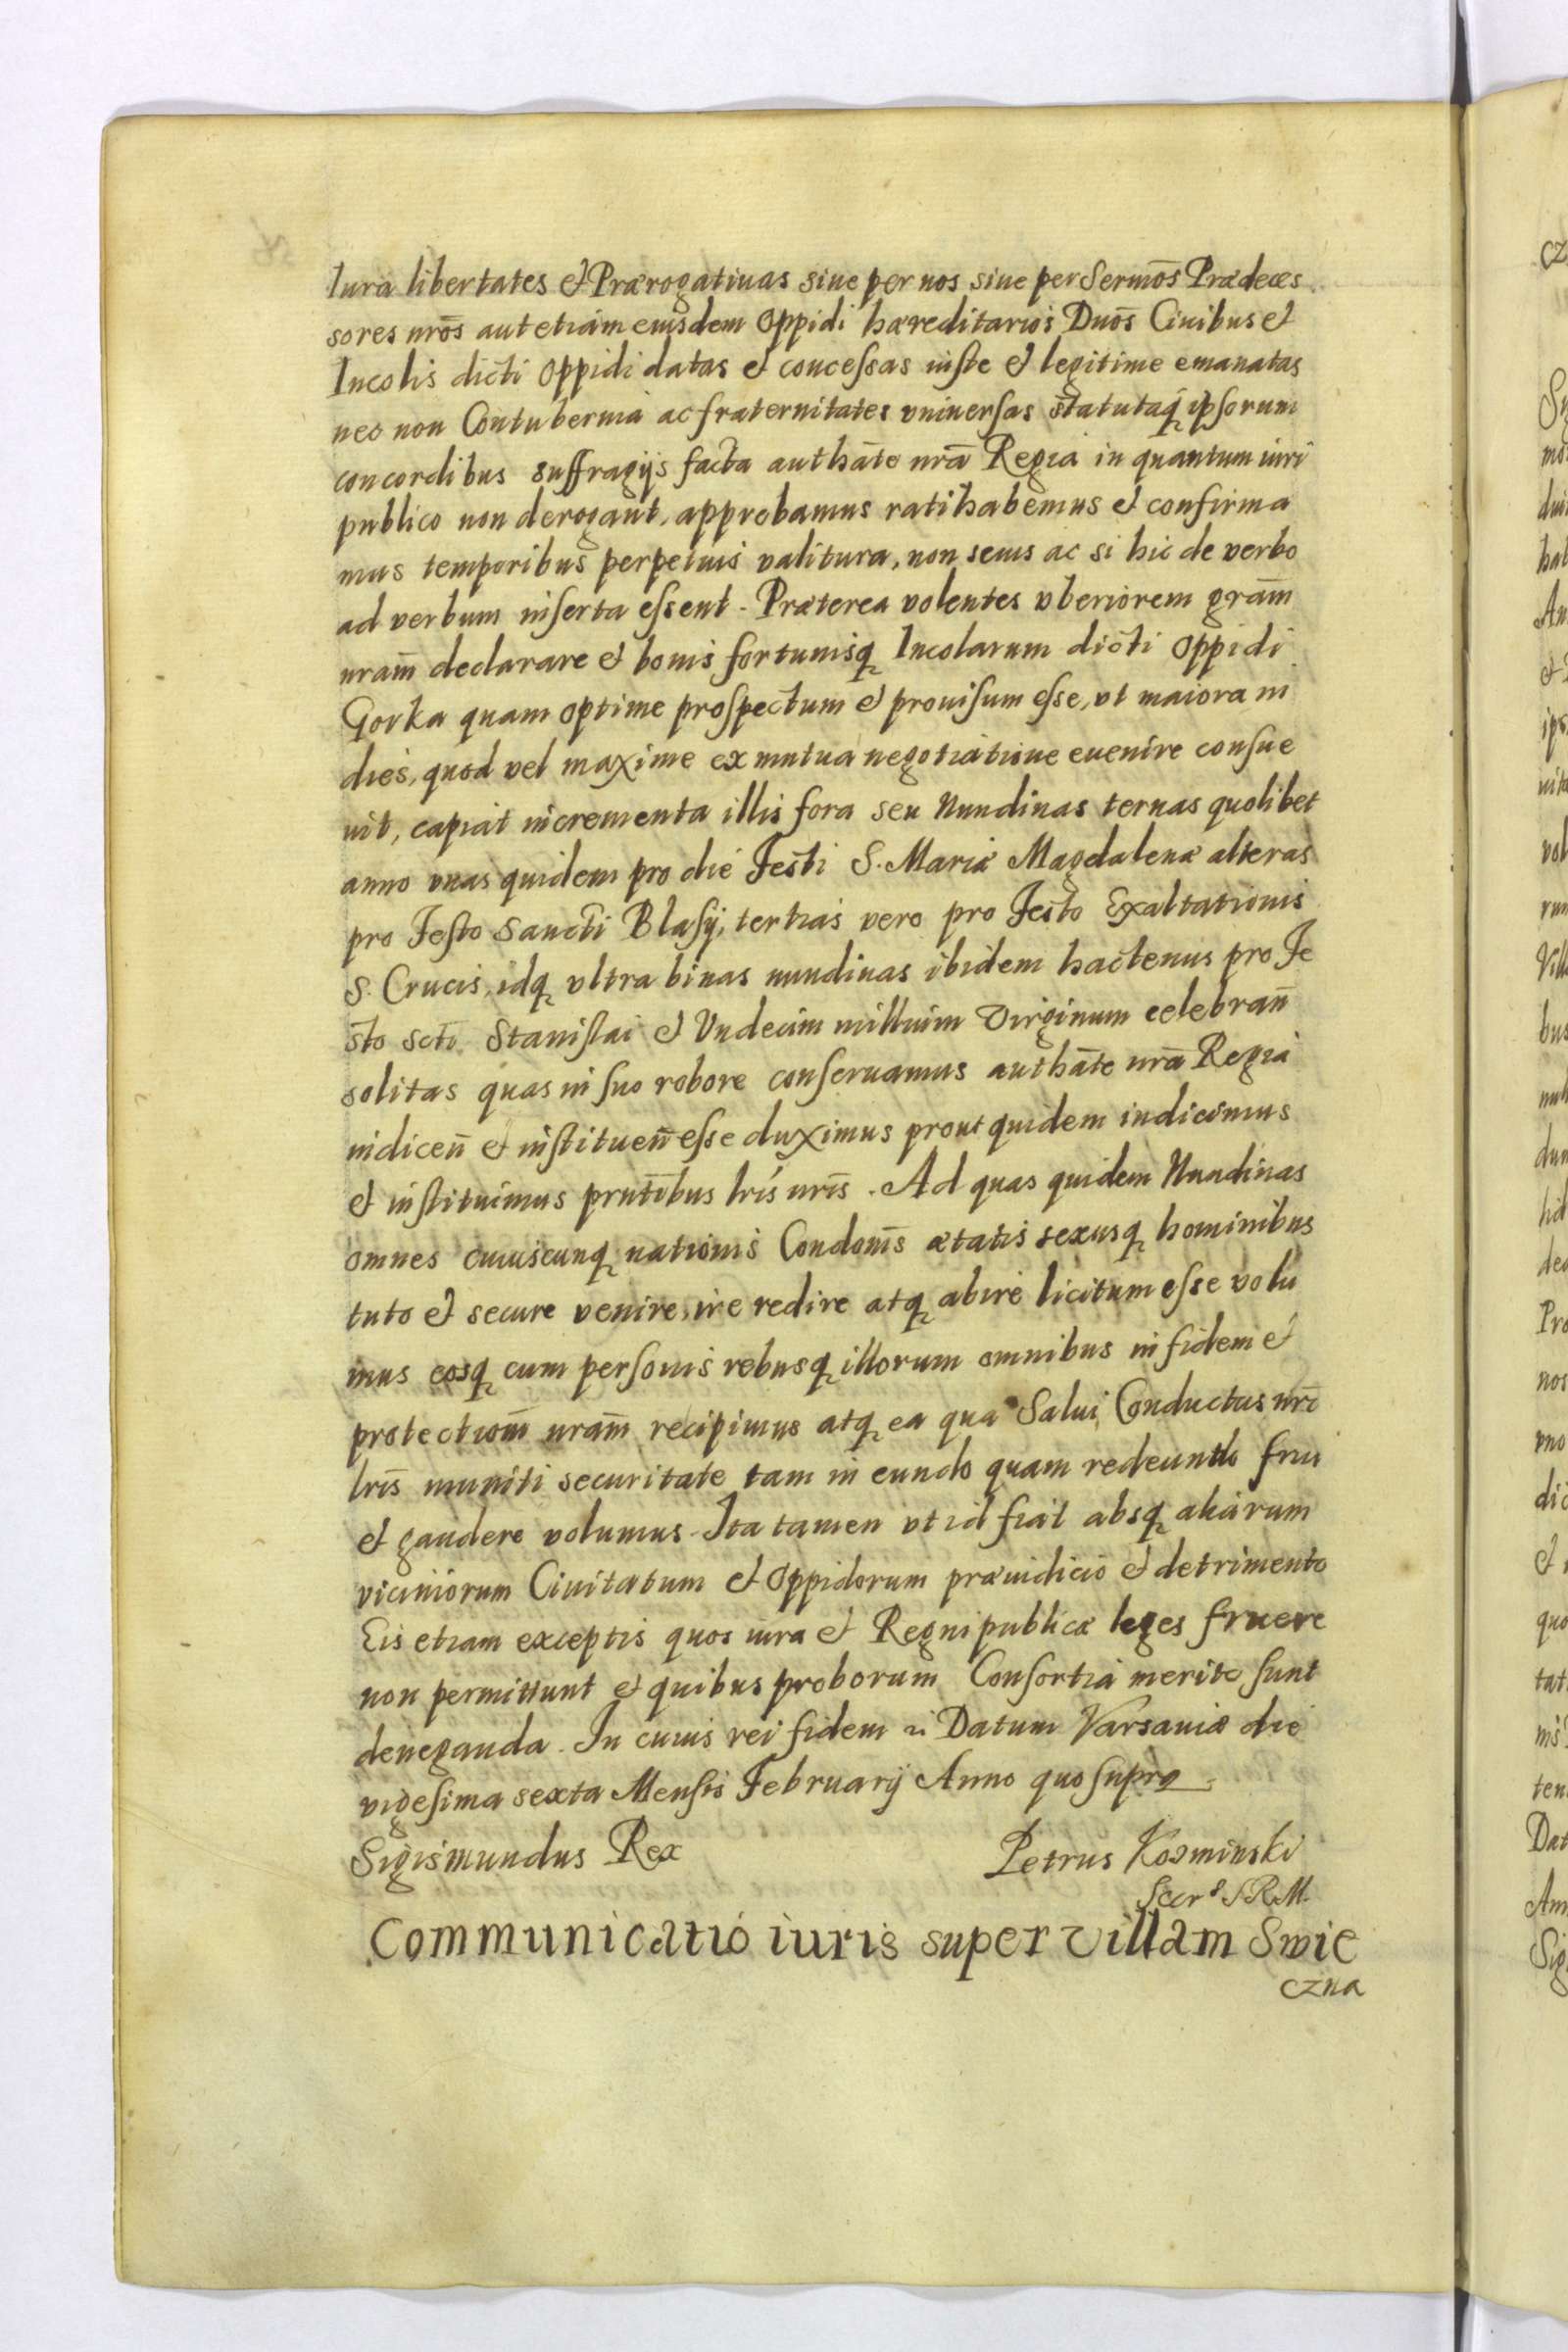 Iura libertates et Prærogatiuas siue per nos siue per Sermōs Prædeces
sores nrōs aut etiam eiusdem Oppidi hæreditarios Dnōs Ciuibus et
Incolis dicti Oppidi datas et concessas iuste et legitime emanatas
nec non Contubernia ac fraternitates vniuersas statutaq ipsorum
concordibus suffragijs facta authāte nrā Regia in quantum iuri
publico non derogant, approbamus ratihabemus et confirma
mus temporibus perpetuis valitura, non secus ac si hic de verbo
ad verbum inserta essent. Præterea volentes vberiorem grām
nram̄ declarare et bonis fortunisq Incolarum dicti Oppidi
Gorka quam optime prospectum et prouisum esse, vt maiora in
dies, quod vel maxime ex mutua negotiatione euenire consue
uit, capiat incrementa illis fora seu Nundinas ternas quolibet
anno vnas quidem pro die Festi S. Mariæ Magdalenæ alteras
pro Festo Sancti Blasij, tertias vero pro Festo Exaltationis
S. Crucis, idq vltra binas nundinas ibidem hactenus pro Fe
sto scti Stanislai et Vndecim millium Virginum celebran̄
solitas quas in suo robore conseruamus authāte nrā Regia
indicen̄ et instituen̄ esse duximus prout quidem indicimus
et instituimus prntībus lrīs nrīs. Ad quas quidem Nundinas
omnes cuiuscunq nationis Condonīs ætatis sexusq hominibus
tuto et secure venire, ire redire atq abire licitum esse volu
mus eosq cum personis rebusq illorum omnibus in fidem et
protectiom̄ nram̄ recipimus atq ea qua Salui Conductus nrī
lrīs muniti securitate tam in eundo quam redeundo frui
et gaudere volumus. Ita tamen vt id fiat absq aliarum
viciniorum Ciuitatum et Oppidorum præiudicio et detrimento
Eis etiam exceptis quos iura et Regni publicæ leges fruere
non permittunt et quibus proborum Consortia merito sunt
deneganda. In cuius rei fidem Datum Varsauiæ die
vigesima sexta Mensis Februarij Anno quo supra
Sigismundus Rex Petrus Kozminski
Secrs S.R.M.
Communicatio iuris super villam Swie
czna